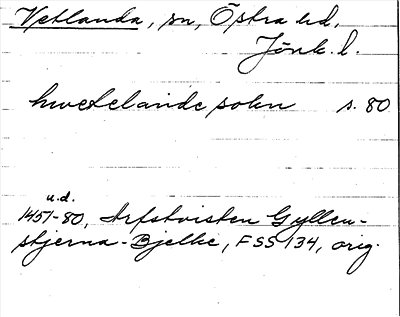 Vetlanda, sn, Östra hd,
Jönk. l.
hwetelande sokn s. 80
u.d.
1451-80, Arfstvisten Gyllen-
stjerna-Bjelke, FSS 134, orig.